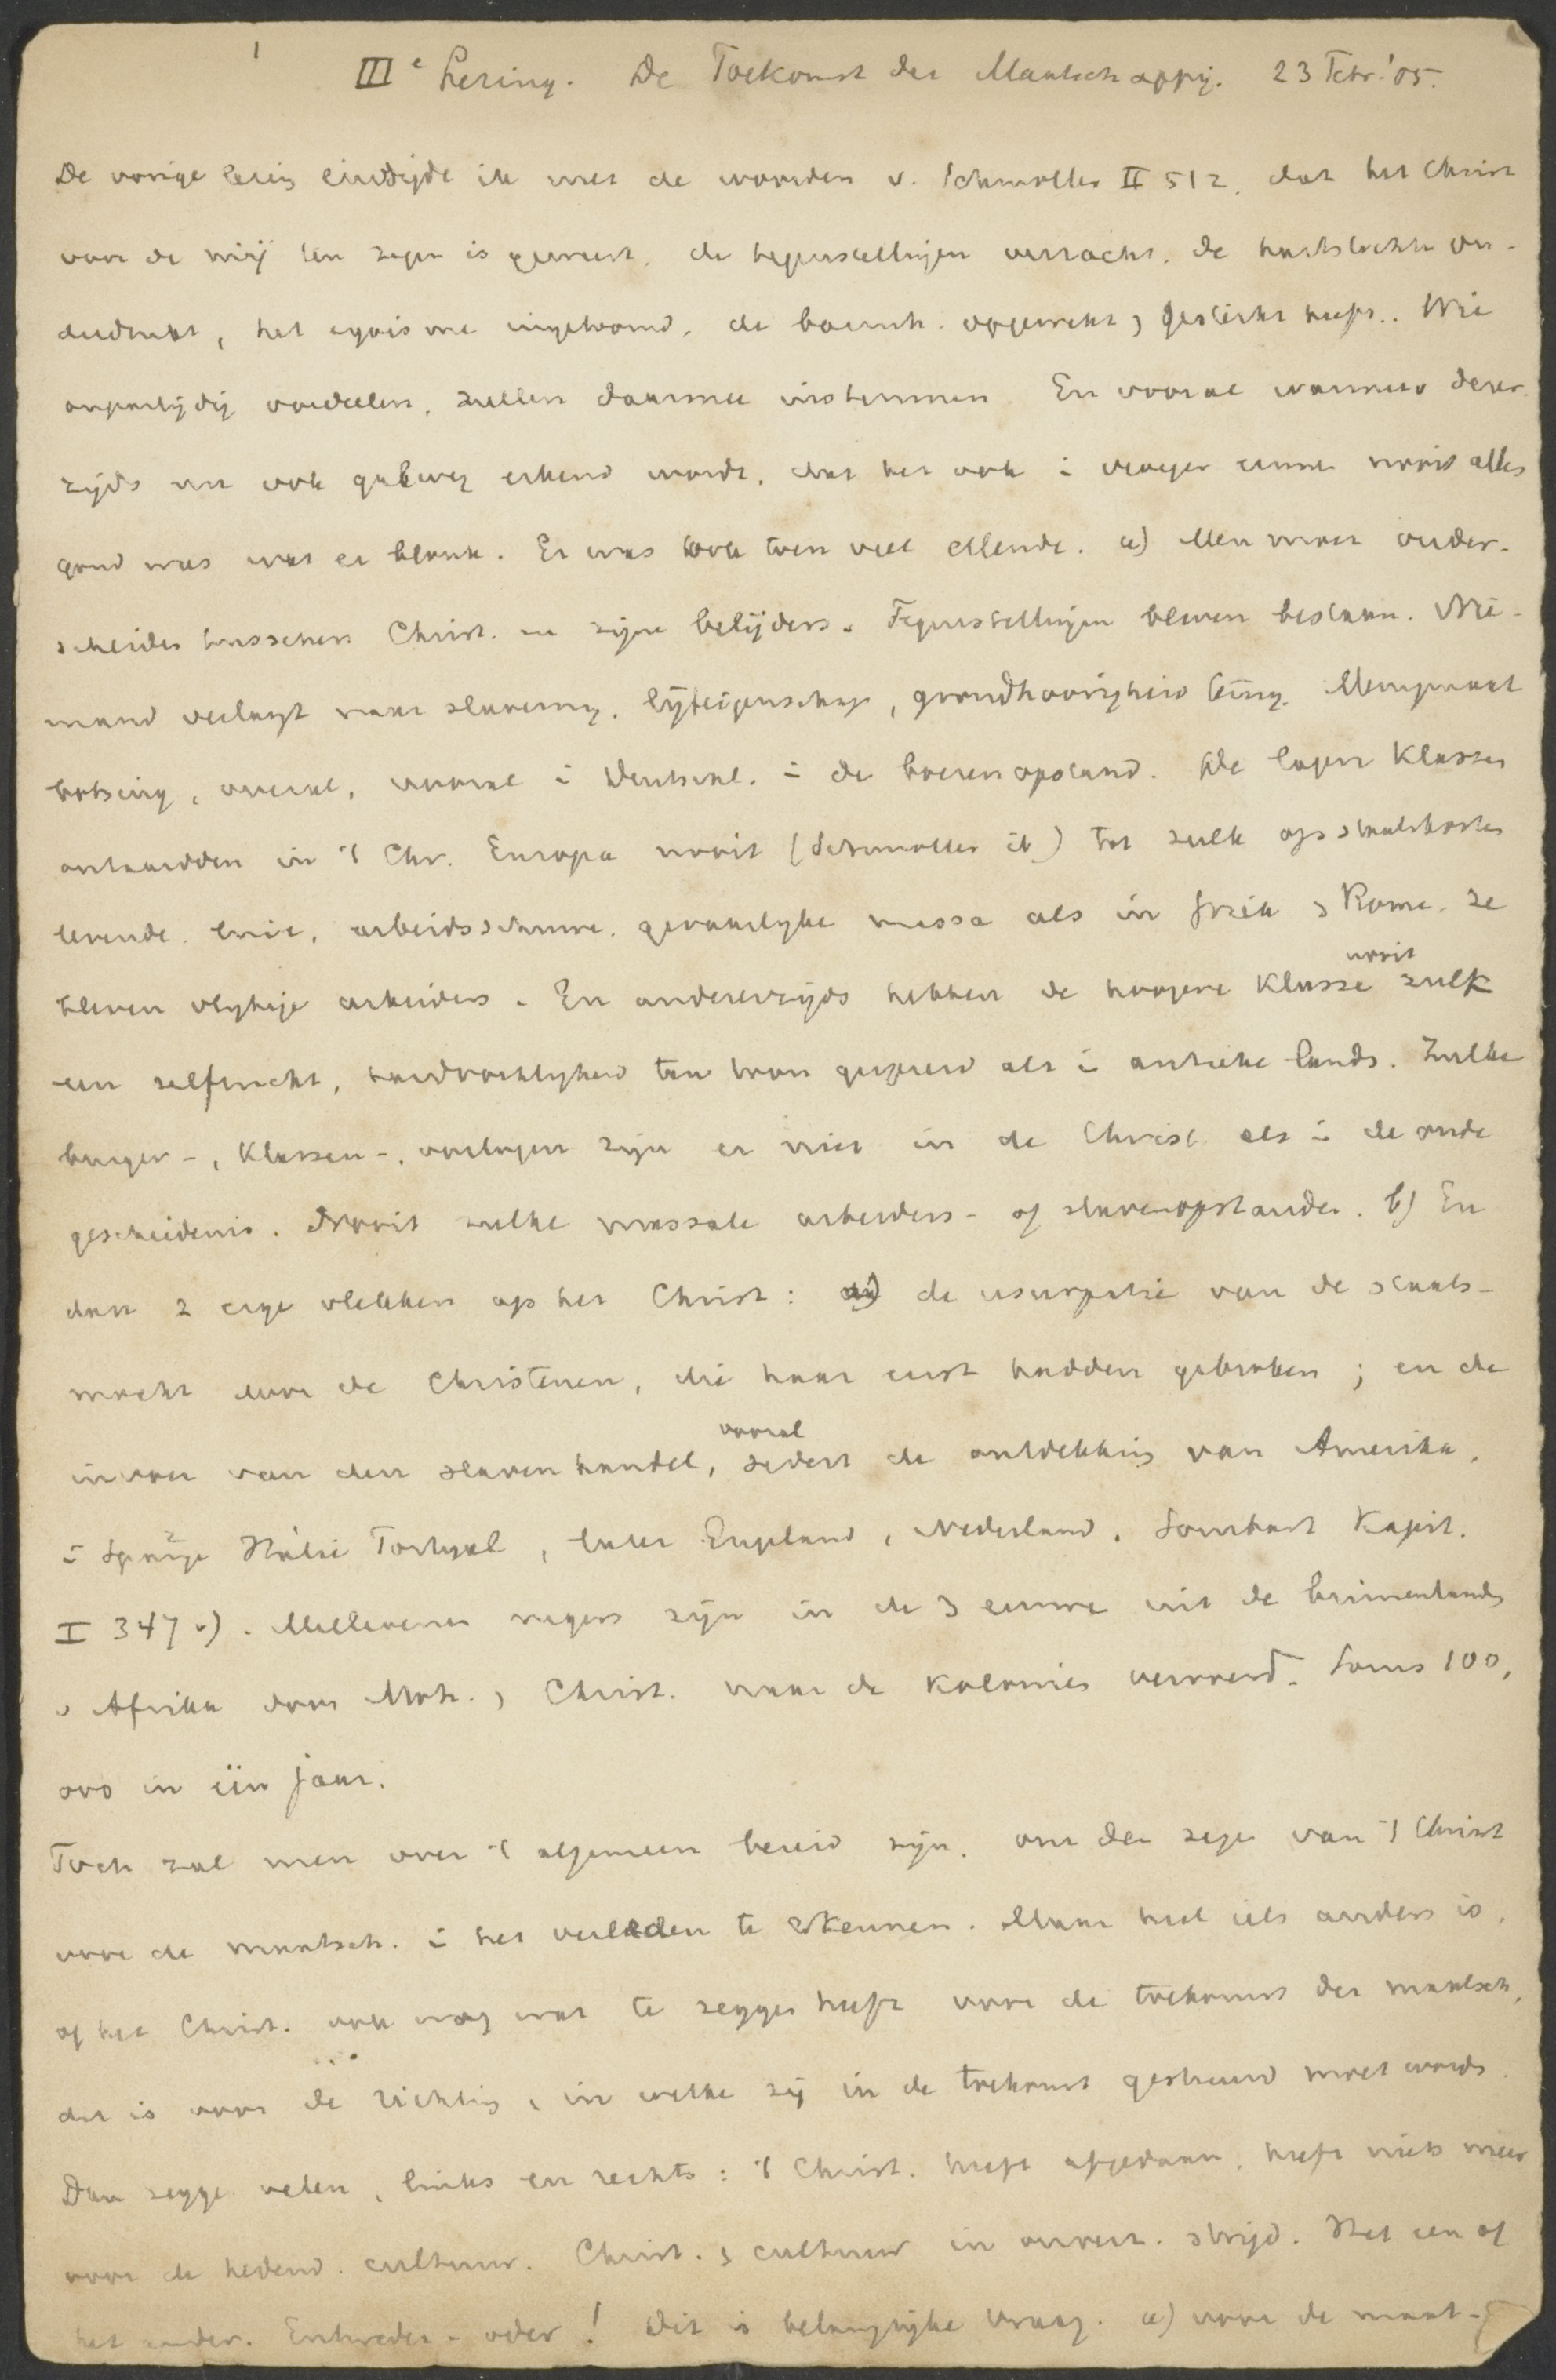 1
IIIe Lezing. De Toekomst der Maatschappij. 23 Febr. '05.
De vorige lezing eindigde ik met de woorden v. Schmoller II 512. dat het Christ
voor de mij een zegen is geweest, de tegenstellingen verzacht, de hartstochten
, het egoisme ingetoomd, de opgewekt, gesticht heeft.. Wie
onpartijdig oordeelen, zullen daarmee instemmen En vooral wanneer
zijds erkend wordt, dat het ook i vroeger eeuwen nooit alles
goud was wat er blonk. Er was ook toen veel ellende. a) Men moet onder-
scheiden tusschen Christ. en zijne belijders. Tegenstellingen bleven bestaan. Nie-
mand verlangt naar slavernij, lijfeigenschap, grondhoorigheid terug.
botsing, overal, vooral i Duitschl. i de boerenopstand. De lagere Klassen
ontaardden in 't Chr. Europa nooit (Schmoller ib) tot zulk op staatskosten
levende, luie, arbeidsschuwe, gevaarlijke massa als in Griek , Rome. Ze
bleven vlijtige arbeiders. En anderzijds hebben de hoogere Klasse nooit zulk
een zelfzucht, hardvochtigheid ten toon gespreid als i antieke lands. Zulke
burger-, Klassen-, oorlogen zijn er niet in de Christ als i de oude
geschiedenis. Nooit zulke massale arbeiders- of slavenopstanden. b) En
dan 2 erge vlekken op het Christ: de usurpatie van de staats-
macht door de Christenen, die haar eerst hadden gebroken; en de
invoer van den slavenhandel, vooral sedert de ontdekking van Amerika,
i Spanje Italie Portugal, later Engeland, Nederland. Sombart Kapit.
I 347 v). Millioenen negers zijn in de 3 eeuwen uit de binnenlands
v Afrika door Moh. , Christ. naar de Kolonies vervoerd. Soms 100,
000 in één jaar.
Toch zal men over 't algemeen bereid zijn, om den zegen van 't Christ
voor de maatsch. i het verleden te erkennen. Maar heel iets anders is,
of het Christ. ook nog wat te zeggen heeft voor de toekomst der maatsch,
dat is voor de richting, in welke zij in de toekomst gestuurd moet words.
Dan zegge velen, links en rechts: 't Christ. heeft afgedaan, heeft niets meer
voor de hedend. cultuur. Christ. , cultuur in onverz. strijd. Het een of
het ander. Entweder - oder! Dit is belangrijke vraag. a) voor de maat-